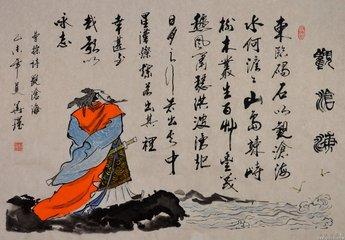 觀滄海
東臨碣石以觀滄海
水何澹澹山島竦峙
樹木叢生百草豐茂
秋風蕭瑟洪波湧起
日月之行若出其中
星漢燦爛若出其裡
幸甚至
哉歌以
咏志
曹操詩觀滄海
乙未年夏